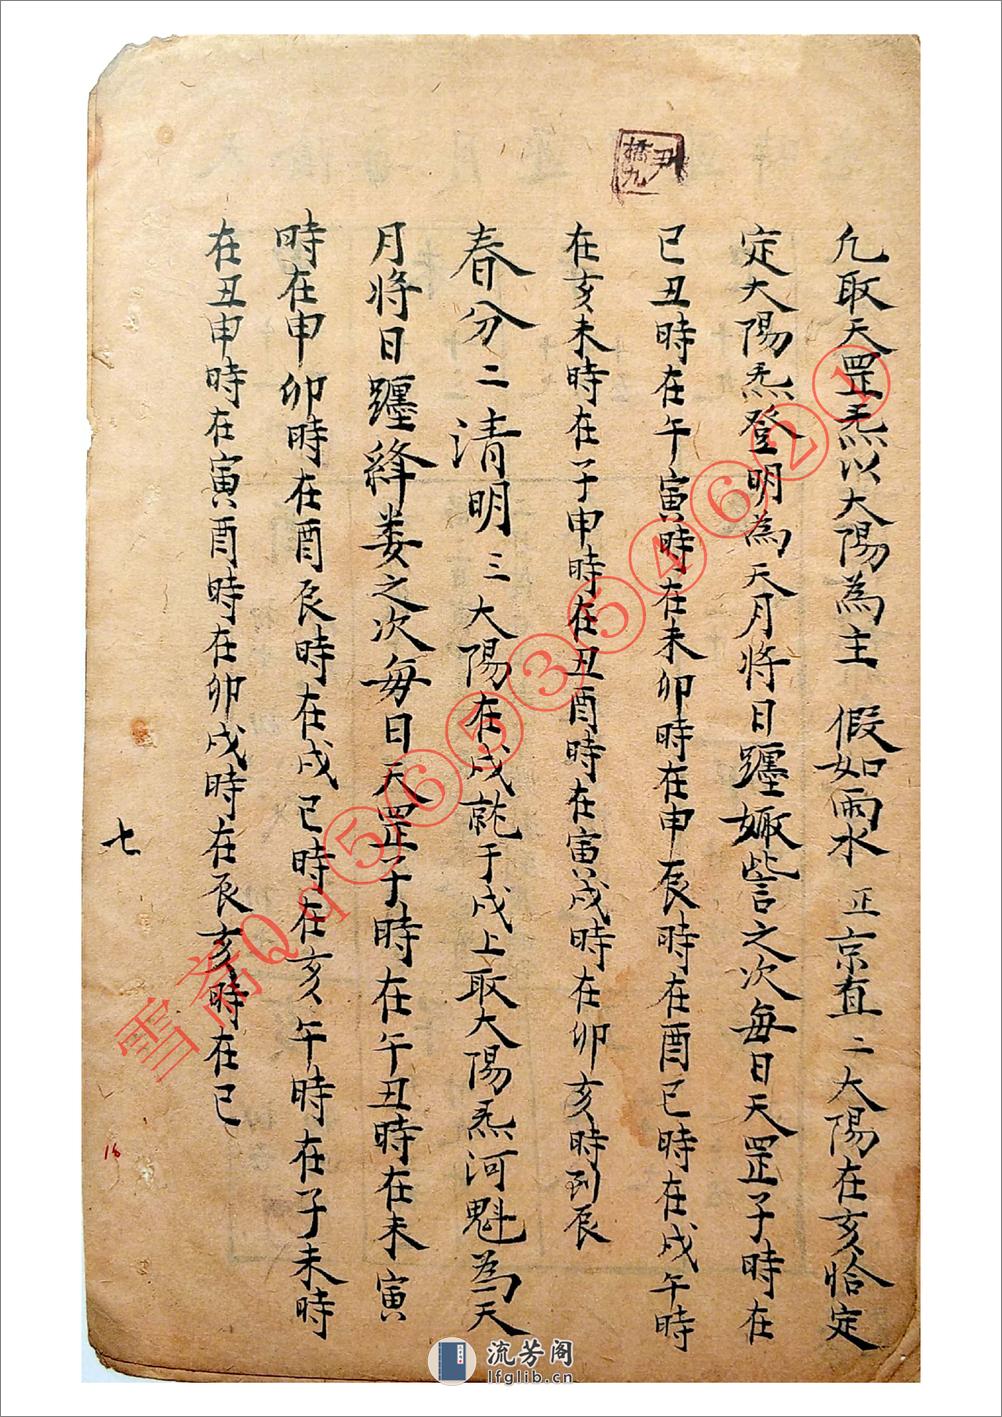 凢取天罡炁以大陽為主 假如雨水 正 京直 二 大陽在亥恰定
定大陽炁登明為天月將日躔娵訾之次每日天罡子時在
巳丑時在午寅時在未卯時在申辰時在酉巳時在戌午時
在亥未時在子申時在丑酉時在寅戌時在卯亥時到辰
春分二清明三大陽在戌就于戌上取大陽炁河魁為天
月將日躔絳娄之次每日天罡子時在午丑時在未寅
時在申卯時在酉辰時在戌巳時在亥午時在子未時
在丑申時在寅酉時在卯戌時在辰亥時在巳
七
16
尹橋九
雪斋Qq⑤⑥⑤③⑤④⑥②①
流芳阁
lfglib.cn